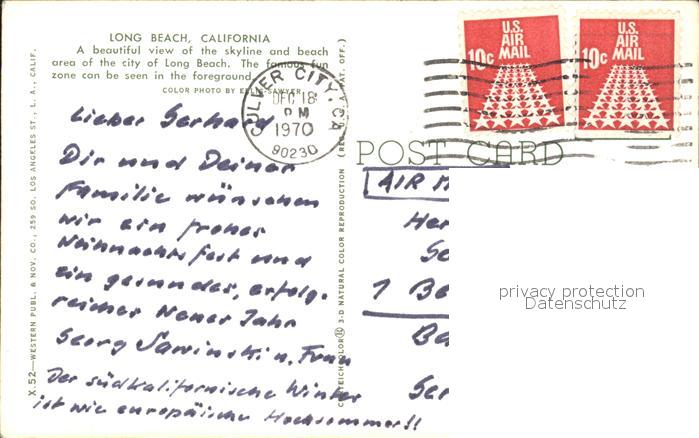 LONG BEACH, CALIFORNIA
A beautiful view of the skyline and beach
area of the city of Long Beach. The famous fun
zone can be seen in the foreground.
COLOR PHOTO BY ELLIS SAWYER
Lieber Gerhard
Dir und Deiner
Familie wünschen
wir ein frohes
Weihnachtsfest und
ein gesundes, erfolg-
reiches Neues Jahr
Georg Sawinski u. Frau
Der südkalifornische Winter
ist wie europäische Hochsommer!!
X.52—WESTERN PUBL. & NOV. CO., 259 SO. LOS ANGELES ST., L. A., CALIF.
3-D NATURAL COLOR REPRODUCTION (REG. U.S.A. PAT. OFF.)
CULVER CITY, CA
DEC 18
PM
1970
90230
U.S.
AIR
MAIL
10c
U.S.
AIR
MAIL
10c
POST CARD
AIR
Her
1 Be
Be
privacy protection
Datenschutz